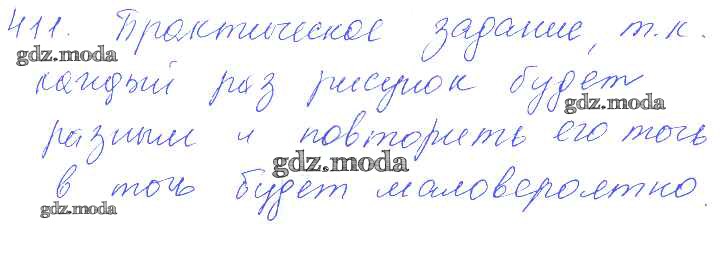 411. Практическое задание, т.к.
gdz.moda
каждый раз рисунок будет
gdz.moda
разным и повторить его точь
gdz.moda
в точь будет маловероятно.
gdz.moda